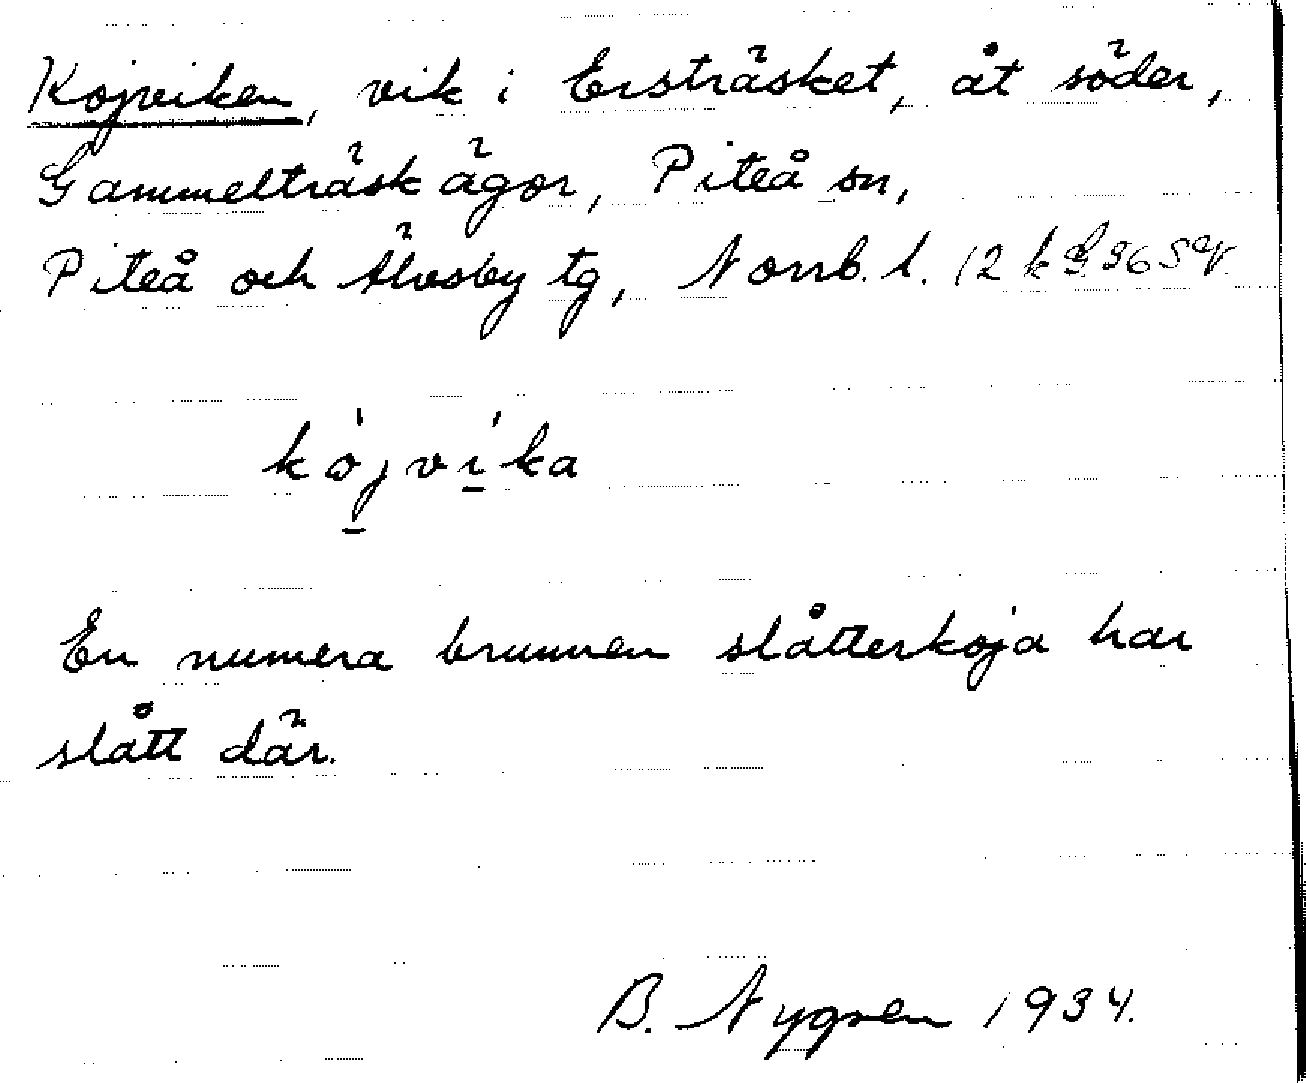 Kojviken, vik i Ersträsket, åt söder,
Gammelträsk ägor, Piteå sn,
Piteå och Älvsby tg, Norrb. l. 12 k
kojvika
En numera brunnen slåtterkoja har
stått där.
B. Nygren 1934.